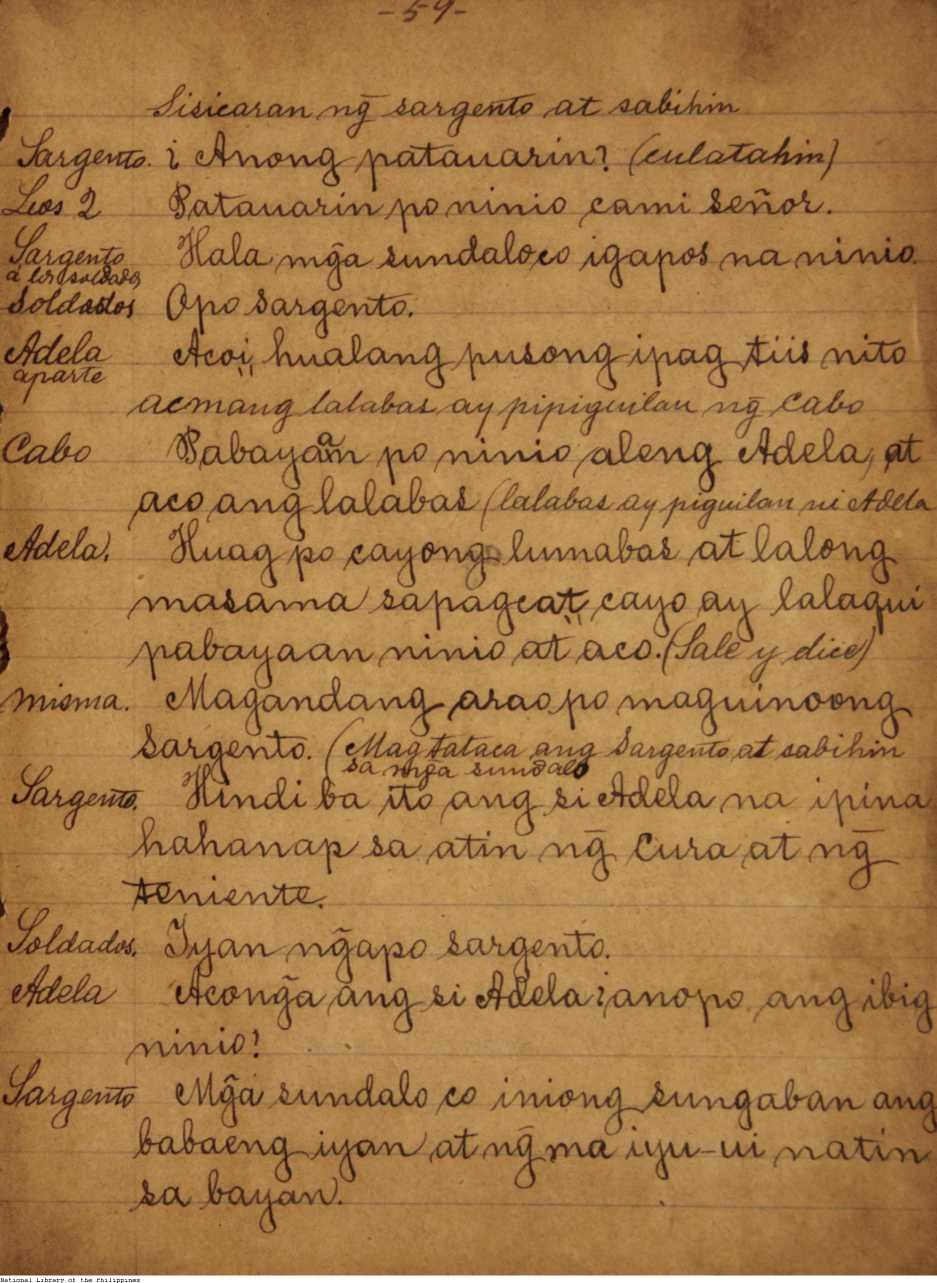 -59-
Sisicaran ng̃ sargento at sabihin
Sargento. ¿ Anong patauarin? (culatahin)
Los 2 Patauarin po ninio cami señor.
Sargento Hala mg̃a sundaloco igapos na ninio.
a los soldados
Soldados Opo sargento.
Adela Acoi, hualang pusong ipag tiis nito
aparte
acmang lalabas ay pipiguilan ng̃ cabo
Cabo Pabayaan po ninio aleng Adela, at
aco ang lalabas (lalabas ay piguilan ni Adela
Adela. Huag po cayong lumabas at lalong
masama sapagcat, cayo ay lalaqui
pabayaan ninio at aco. (Sale y dice)
misma. Magandang arao po maguinoong
sargento. (Magtataca ang Sargento at sabihin
sa mg̃a sundalo
Sargento. Hindi ba ito ang si Adela na ipina
hahanap sa atin ng̃ Cura at ng̃
teniente.
Soldados. Iyan ng̃apo sargento.
Adela Acong̃a ang si Adela ¿anopo ang ibig
ninio?
Sargento Mg̃a sundalo co iniong sungaban ang
babaeng iyan at ng̃ ma iyu-ui natin
sa bayan.
National Library of the Philippines